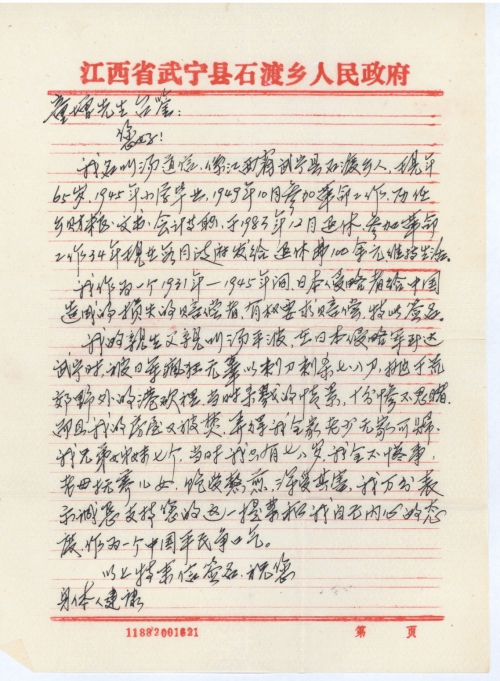 江西省武宁县石渡乡人民政府
童增先生台鉴:
您好!
我名叫汤道位,系江西省武宁县石渡乡人,现年
65岁,1945年小学毕业,1949年10月参加革命工作,历任
乡财粮、文书、会计等职,于1983年12月退休。参加革命
工作34年现在每月政府发给退休费100余元维持生活。
我作为一个1931年—1945年间,日本侵略者给中国
造成的损失的赔偿者,有权要求赔偿,特此签名。
我的亲生父亲叫汤平波,在日本侵略军到达
武宁时,被日军疯狂无辜以刺刀刺杀七八刀,抛至于荒
郊野外的港坎里,当时杀戮的情景,十分惨不忍睹。
而且我的房屋又被焚,弄得我全家老少无家可归。
我兄弟姊妹七个,当时我只有七八岁,我全不懂事,
老母抚养儿女,饱受熬煎,深受其害,我万分表
示诚恳支持您的这一提案和我自己内心的态
度,作为一个中国平民争口气。
以上特来信签名。祝您
身体健康
11882001621 第 页